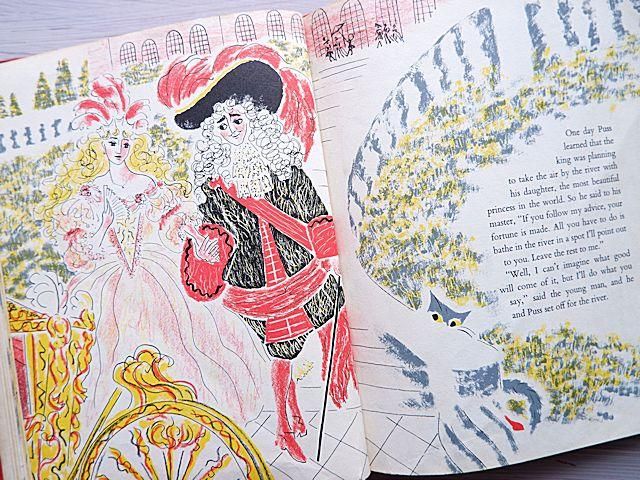 One day Puss
learned that the
king was planning
to take the air by the river with
his daughter, the most beautiful
princess in the world. So he said to his
master, "If you follow my advice, your
fortune is made. All you have to do is
bathe in the river in a spot I'll point out
to you. Leave the rest to me."
"Well, I can't imagine what good
will come of it, but I'll do what you
say," said the young man, and he
and Puss set off for the river.